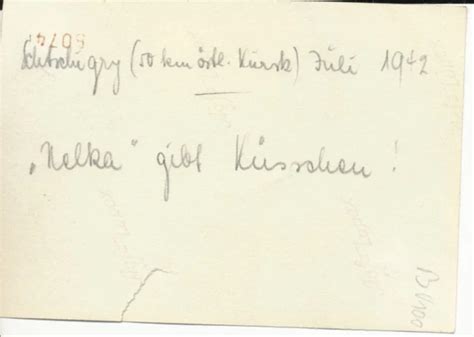 5074
Schtschigry (50 km östl. Kursk) Juli 1942
„Nelka“ gibt Küsschen!
B 1100